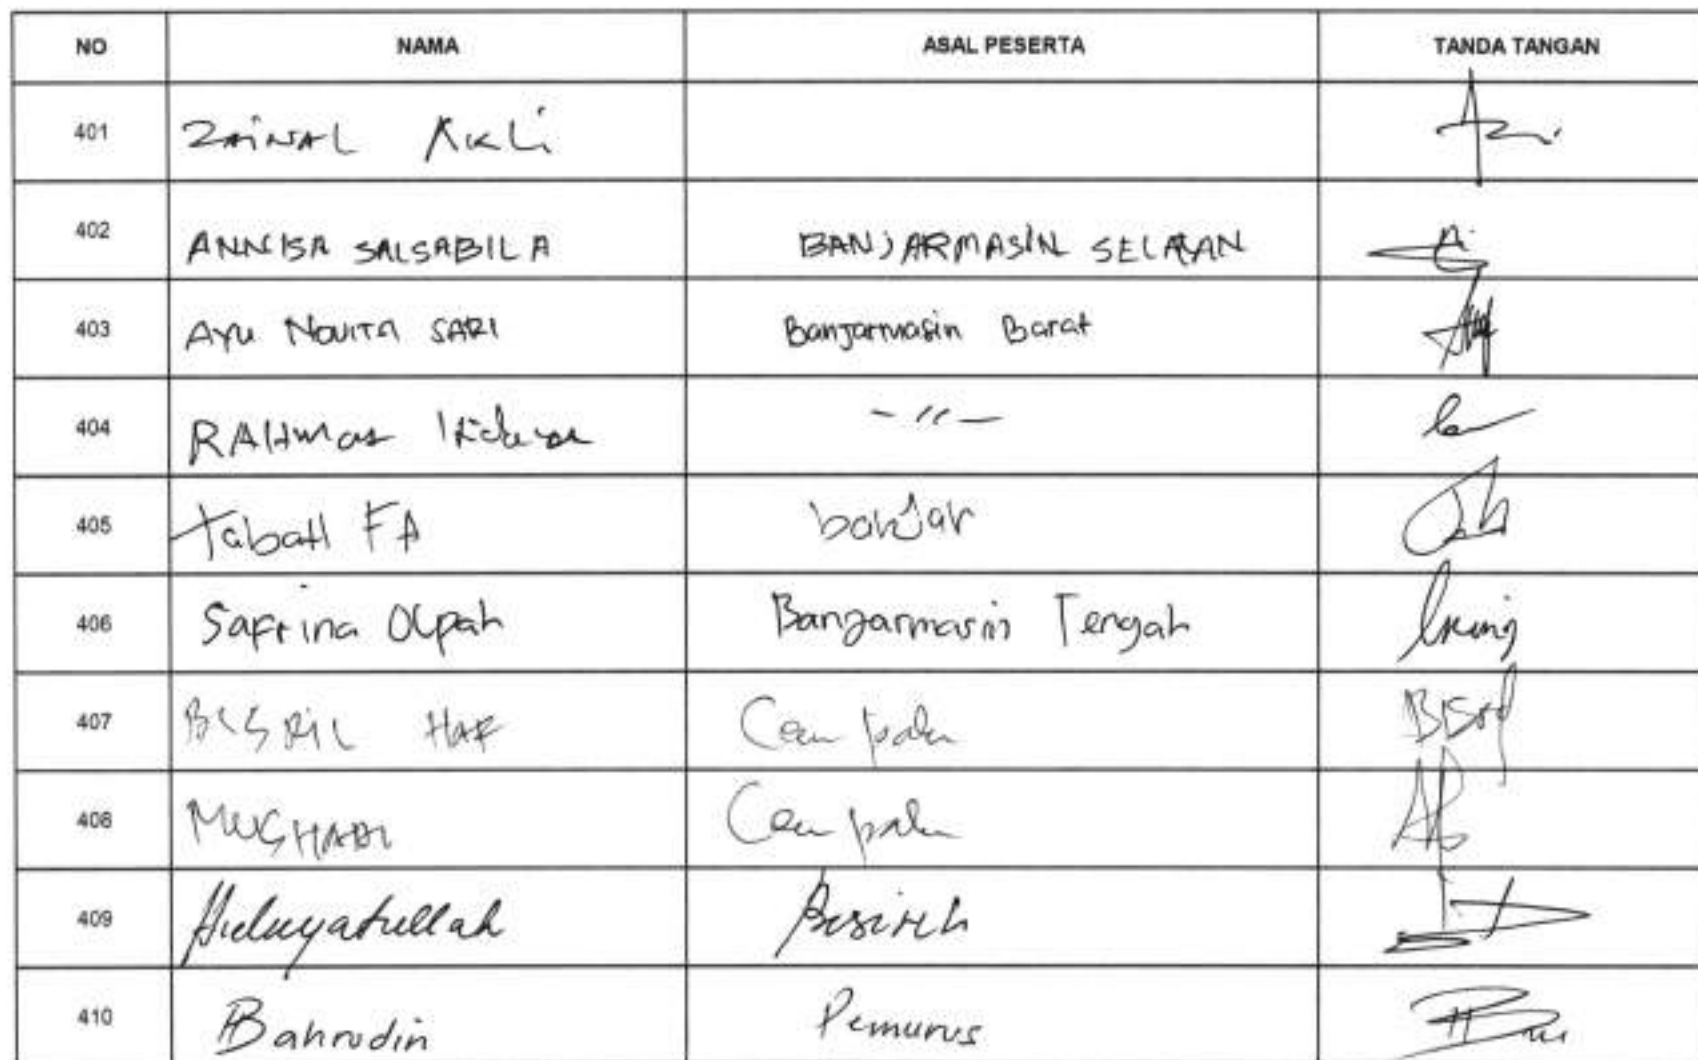 NO NAMA ASAL PESERTA TANDA TANGAN
401 ZAINAL AKLI
402 ANNISA SALSABILA BANJARMASIN SELATAN
403 AYU NOVITA SARI Banjarmasin Barat
404 RAHmat Hidayat - 〃 -
405 Tabah FA banjar
406 Safrina Olpah Banjarmasin Tengah
407 BISRIL HAF Cempaka
408 MUGHADI Cempaka
409 Hidayatullah Basirih
410 Bahrudin Pemurus